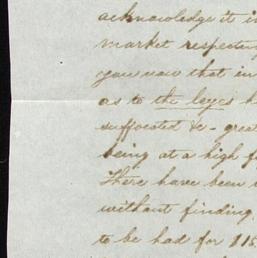 acknowledge it i
market respecting
you now that in
as to the
suffocated &- great
being at a high f
There have been
without finding
to be had for $15